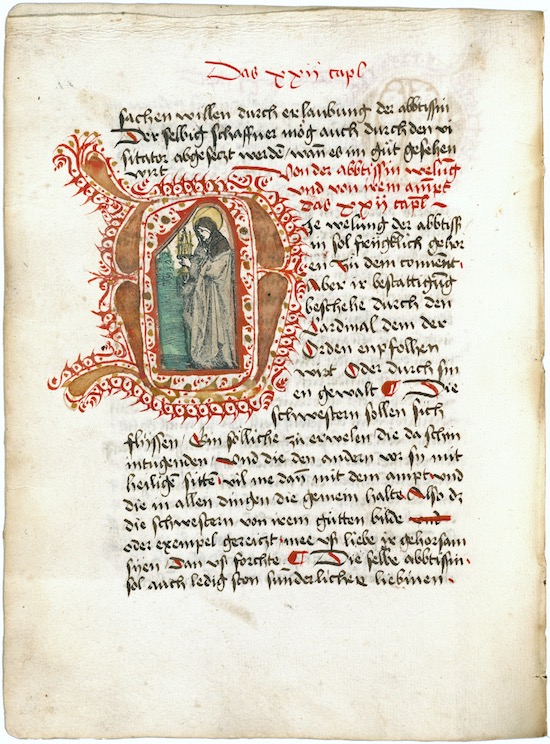 Das xxij capl
sachen willen durch erlaubung der abbtissin
Der selbig schaffner mög auch durch den vi
sitator abgesetzt werden / wañ es im gůt gesehen
wirt Von der abbtissin welung
und von irem ampt
das xxij capl
Die welung der abbtiss
in sol frenglich gehor
en Zů dem convent
Aber ir bestattigung
beschehe durch den
Cardinal dem der
Orden enpfolhen
wirt Oder durch sin
en gewalt Die
schwestern sollen sich
flijssen Ein sölliche zů erwelen die da schin
in tugenden Und die den andern vor sy mit
heiligen sittē vil me dañ mit dem ampt und
die in allen dingen die gemein halte Also dz
die schwestern von irem gůtten bilde und
oder exempel gereizt mee vß liebe ir gehorsam
sijen Dan vß forchte Die selbe abbtissin
sol auch ledig ston sunderlicher liebinen